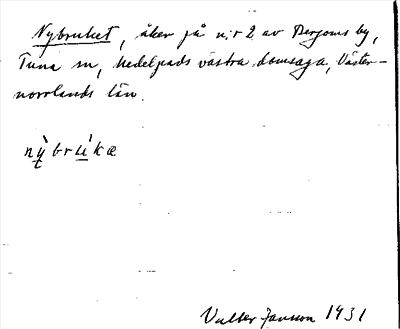 Nybruket, åker på n:r 2 av Bergoms by,
Tuna sn, Medelpads västra domsaga, Väster-
norrlands län.
nỳbrúkæ
Valter Jansson 1931